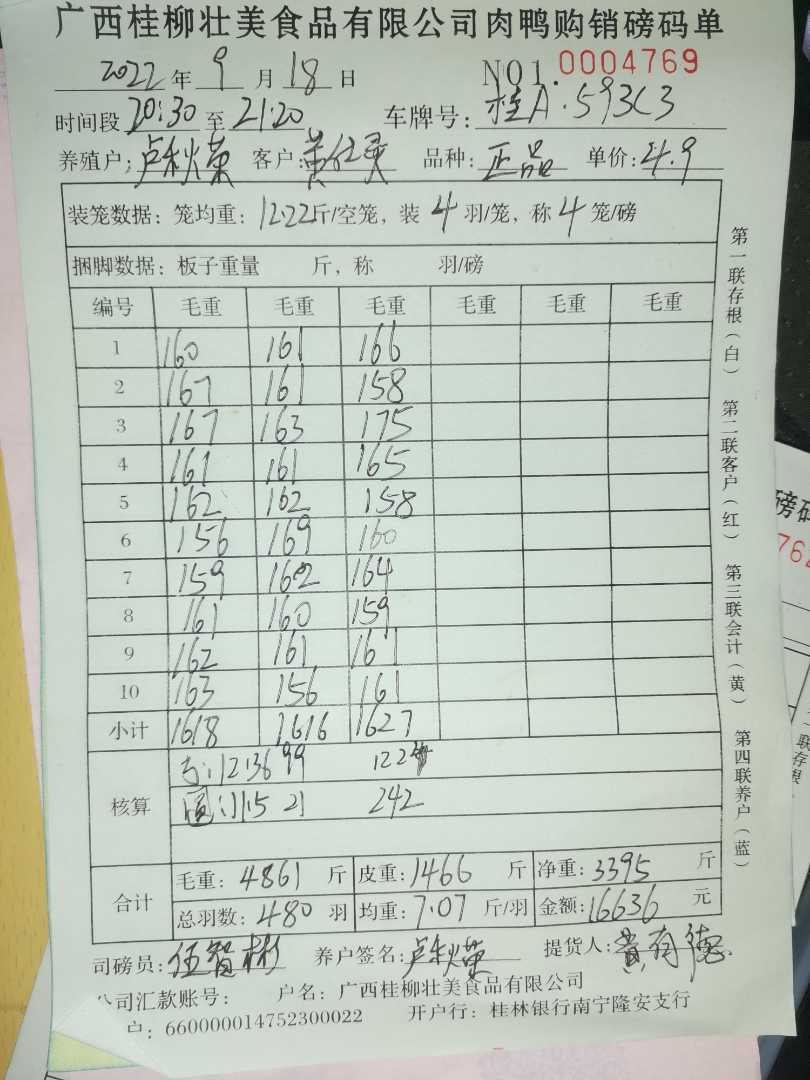 广西桂柳壮美食品有限公司肉鸭购销磅码单
2022年9月18日 NO1.0004769
时间段20:30至21:20 车牌号:桂A·593C3
养殖户:卢秋荣 客户:黄 品种:正品 单价:4.9
装笼数据:笼均重:12.22斤/空笼,装4羽/笼,称4笼/磅
捆脚数据:板子重量 斤,称 羽/磅
编号 毛重 毛重 毛重 毛重 毛重 毛重
1 160 161 166
2 167 161 158
3 167 163 175
4 161 161 165
5 162 162 158
6 156 169 160
7 159 162 164
8 161 160 159
9 162 161 161
10 163 156 161
小计 1618 1616 1627
12:36 99
核算 11:15 21 242
合计 毛重:4861斤 皮重:1466斤 净重:3395斤
总羽数:480羽 均重:7.07斤/羽 金额:16636元
司磅员:伍智彬 养户签名:卢秋荣 提货人:黄有德
公司汇款账号: 户名:广西桂柳壮美食品有限公司
户:660000014752300022 开户行:桂林银行南宁隆安支行
第一联存根(白)
第二联客户(红)
第三联会计(黄)
第四联养户(蓝)
磅码
762
联存根